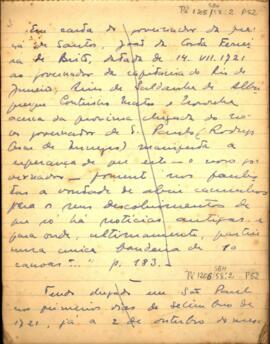 SBH
Pi 125/58:2 P52
Em carta do governador da pra-
ça de Santos, João da Costa Ferrei-
ra de Brito, datada de 14.VII.1721
ao governador da capitania do Rio de
Janeiro, Aires de Saldanha de Albu-
querque Coutinho Matos e Noronha
acerca da proxima chegada do no-
vo governador de S. Paulo (Rodrigo
Cesar de Menezes) manifesta a
esperança de que este – o novo go-
vernador – fomente nos paulis-
tas a vontade de abrir caminhos
para o seus descobrimentos de
que só há notícias antigas e
para onde, ultimamente, partiu
uma unica bandeira de 10
canoas "..." p. 183.–
SBH
Pi 125/58:2 P52
Tendo chegado em São Paulo
nos primeiros dias de setembro de
1721, já a 2 de outubro